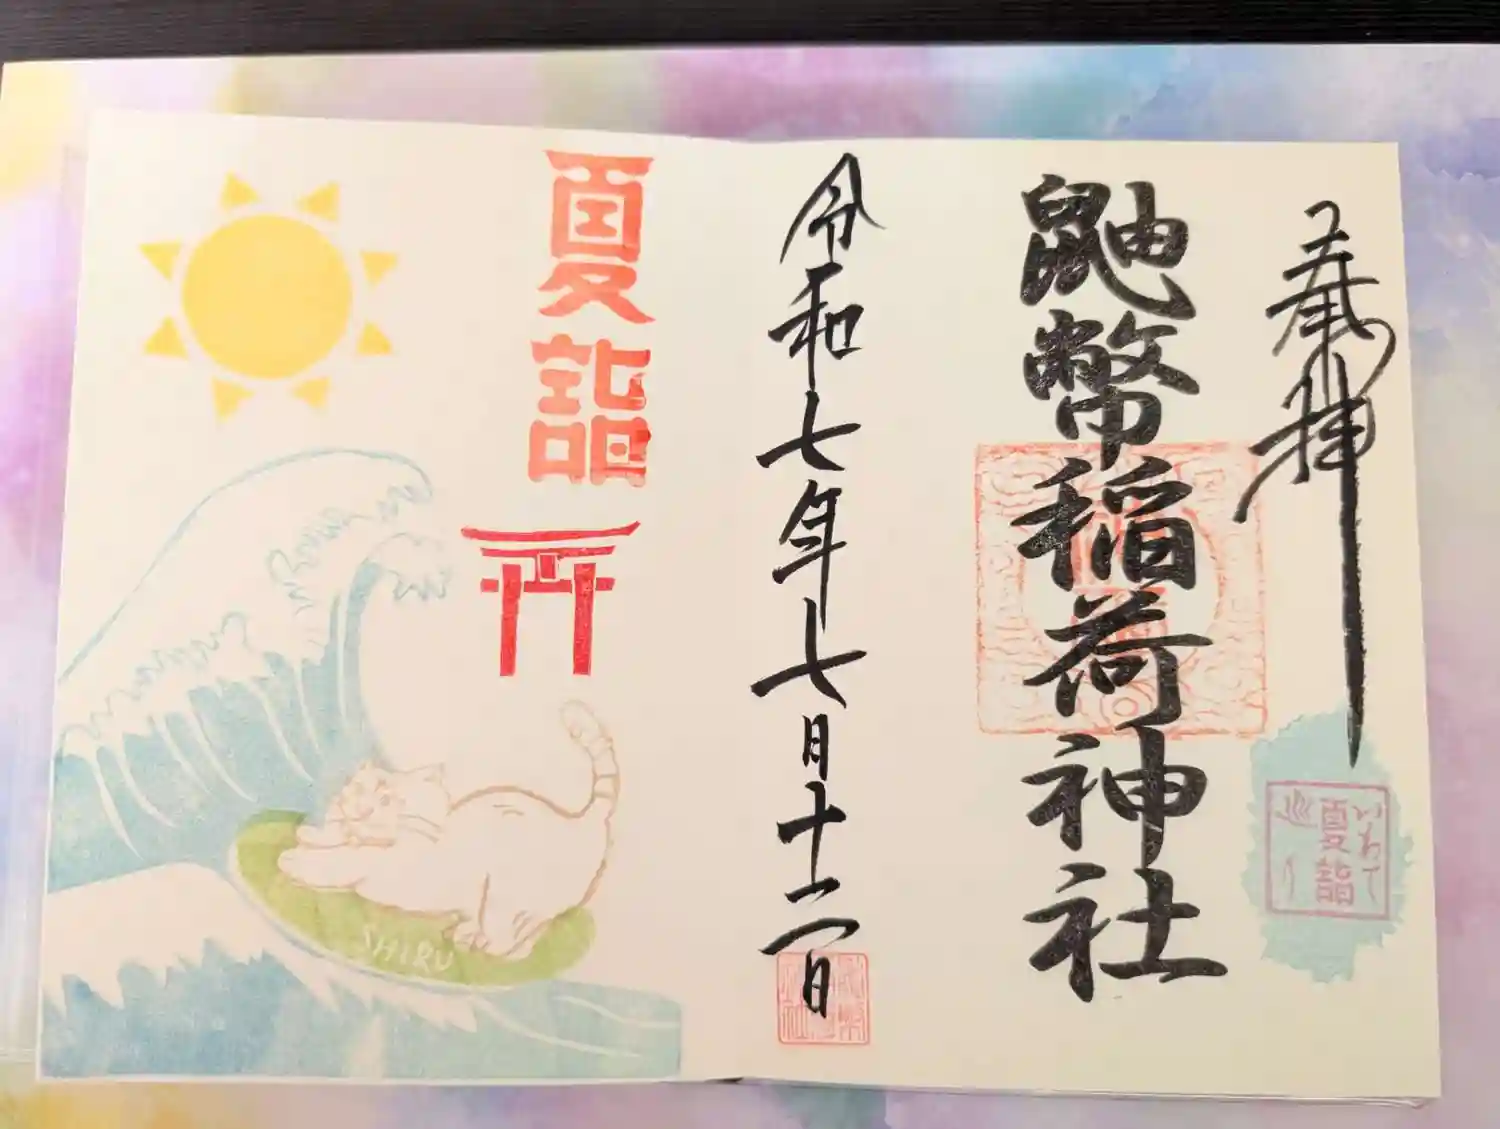 奉拝
いわて
夏詣
巡り
鼬幣稲荷神社
令和七年七月十二日
夏詣
SHIRU